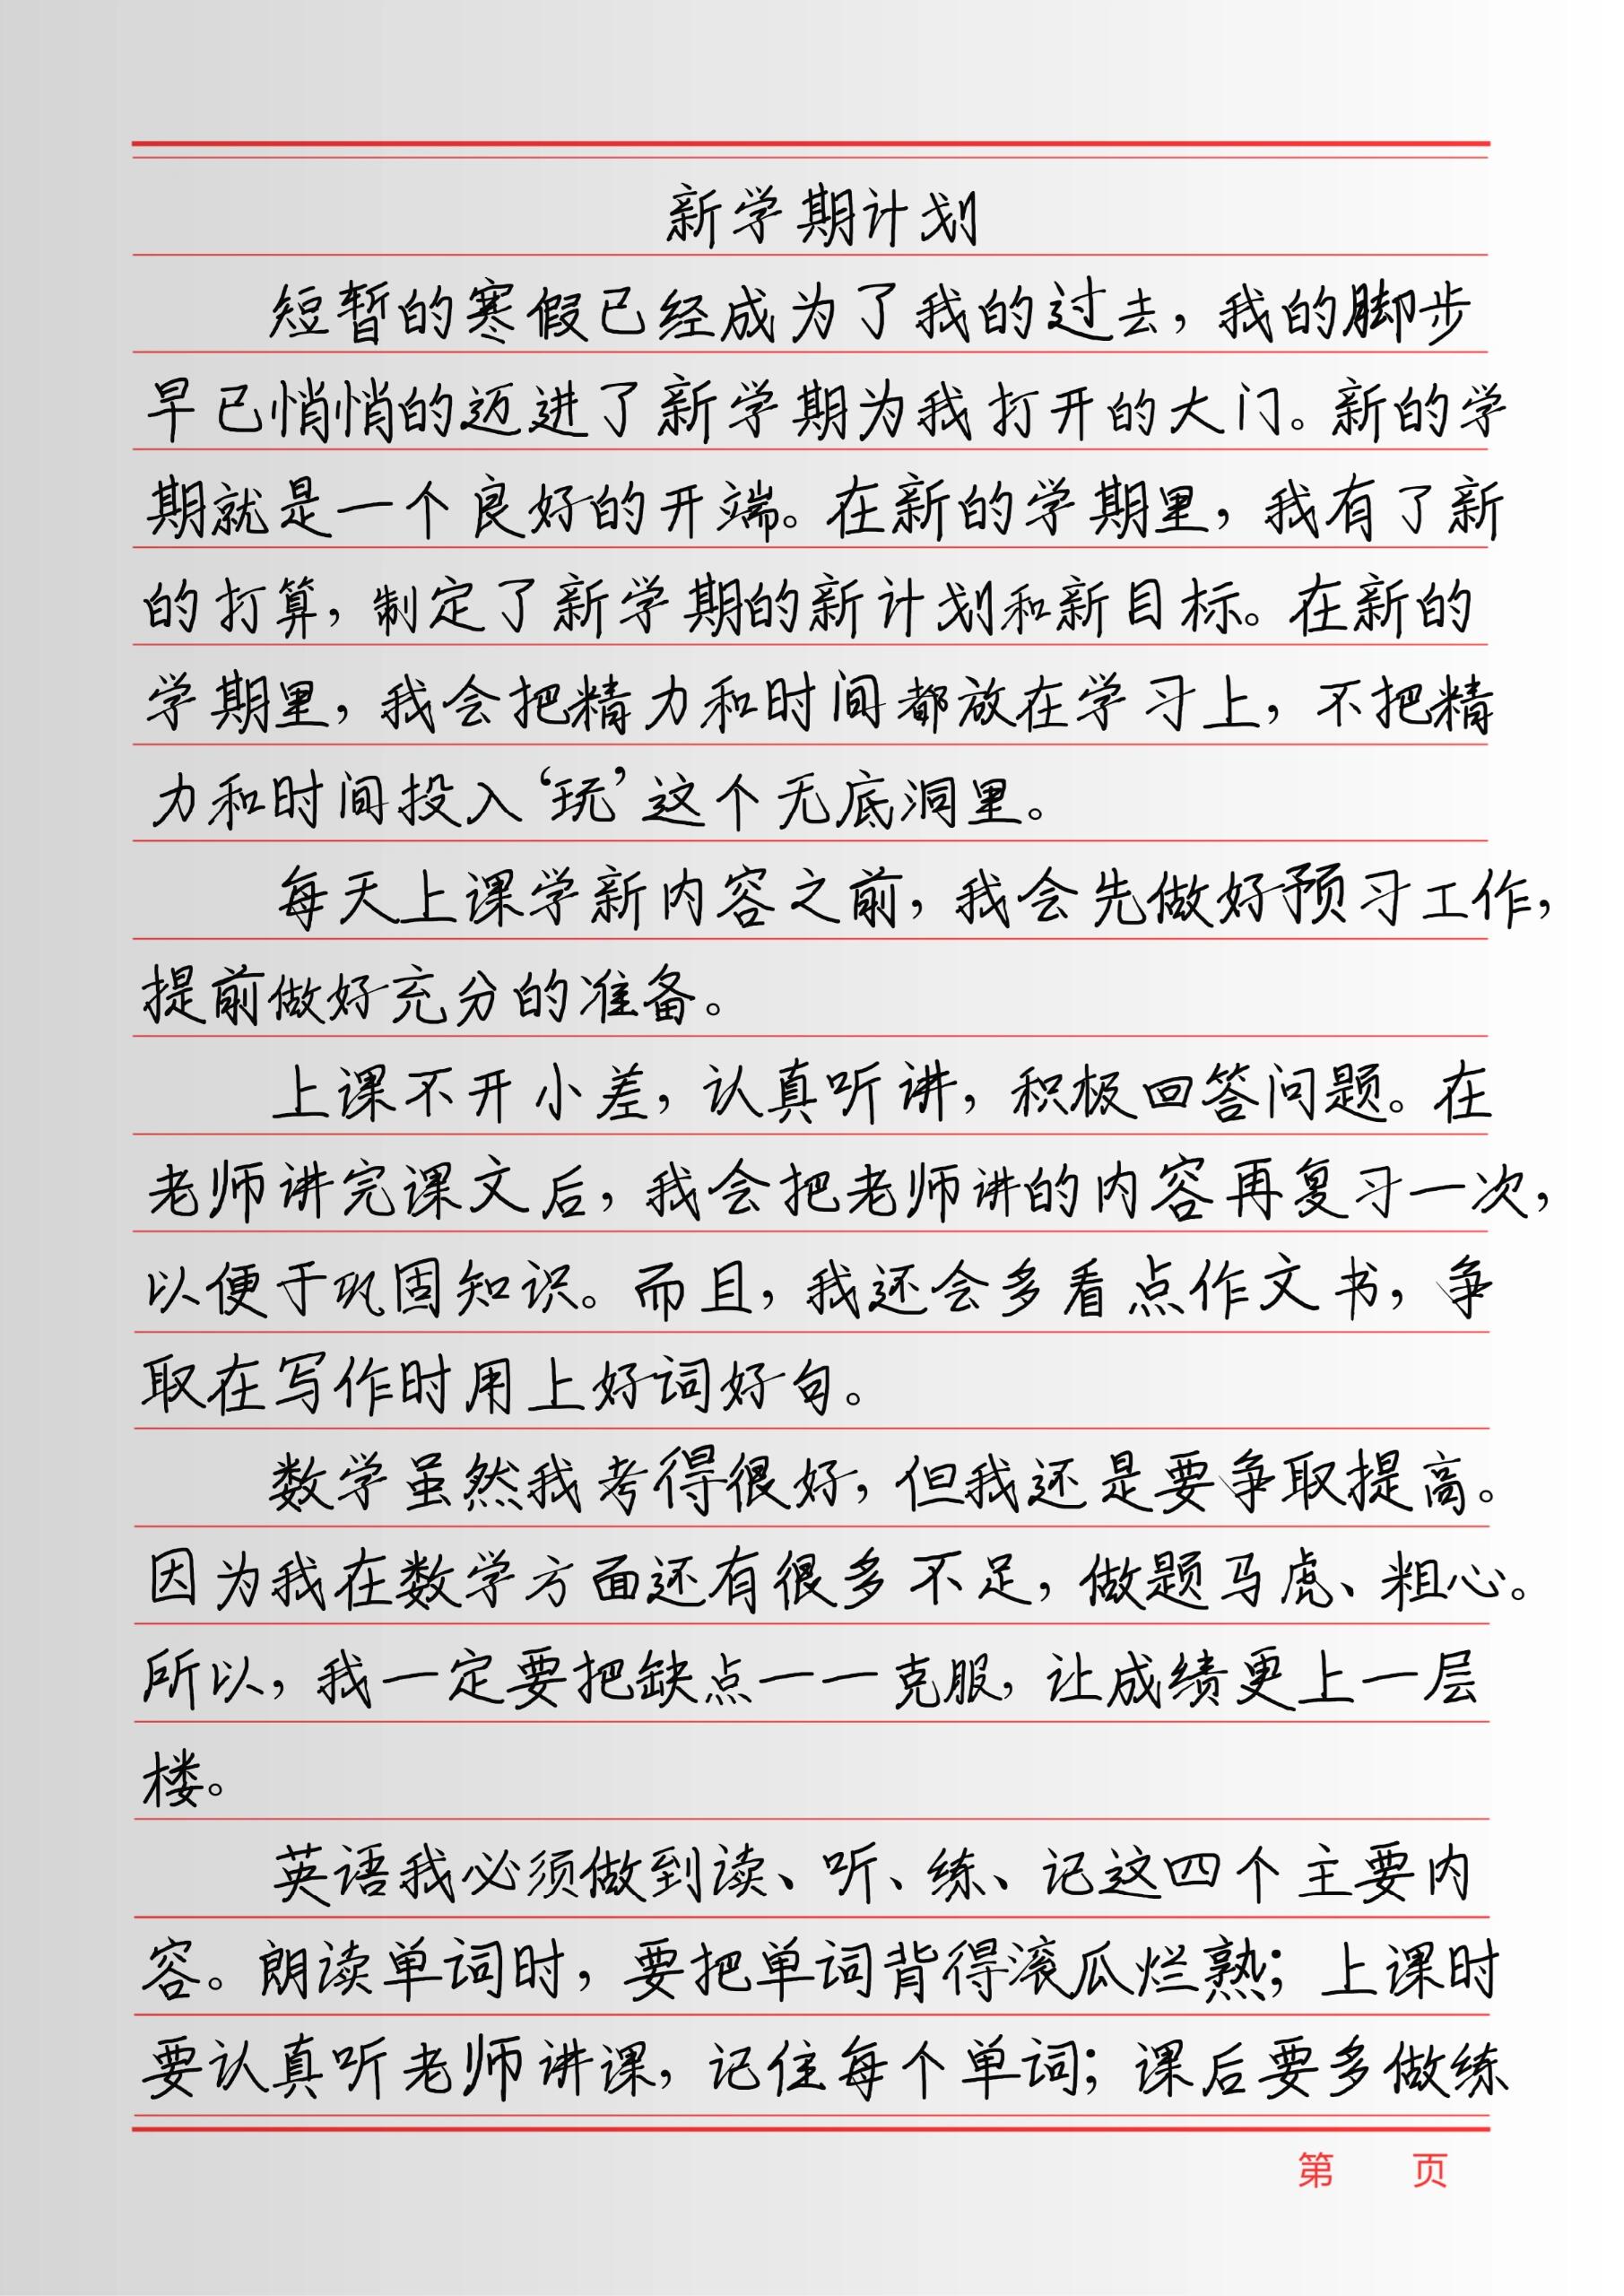 新学期计划
短暂的寒假已经成为了我的过去，我的脚步
早已悄悄的迈进了新学期为我打开的大门。新的学
期就是一个良好的开端。在新的学期里，我有了新
的打算，制定了新学期的新计划和新目标。在新的
学期里，我会把精力和时间都放在学习上，不把精
力和时间投入‘玩’这个无底洞里。
每天上课学新内容之前，我会先做好预习工作，
提前做好充分的准备。
上课不开小差，认真听讲，积极回答问题。在
老师讲完课文后，我会把老师讲的内容再复习一次，
以便于巩固知识。而且，我还会多看点作文书，争
取在写作时用上好词好句。
数学虽然我考得很好，但我还是要争取提高。
因为我在数学方面还有很多不足，做题马虎、粗心。
所以，我一定要把缺点一一克服，让成绩更上一层
楼。
英语我必须做到读、听、练、记这四个主要内
容。朗读单词时，要把单词背得滚瓜烂熟；上课时
要认真听老师讲课，记住每个单词；课后要多做练
第 页